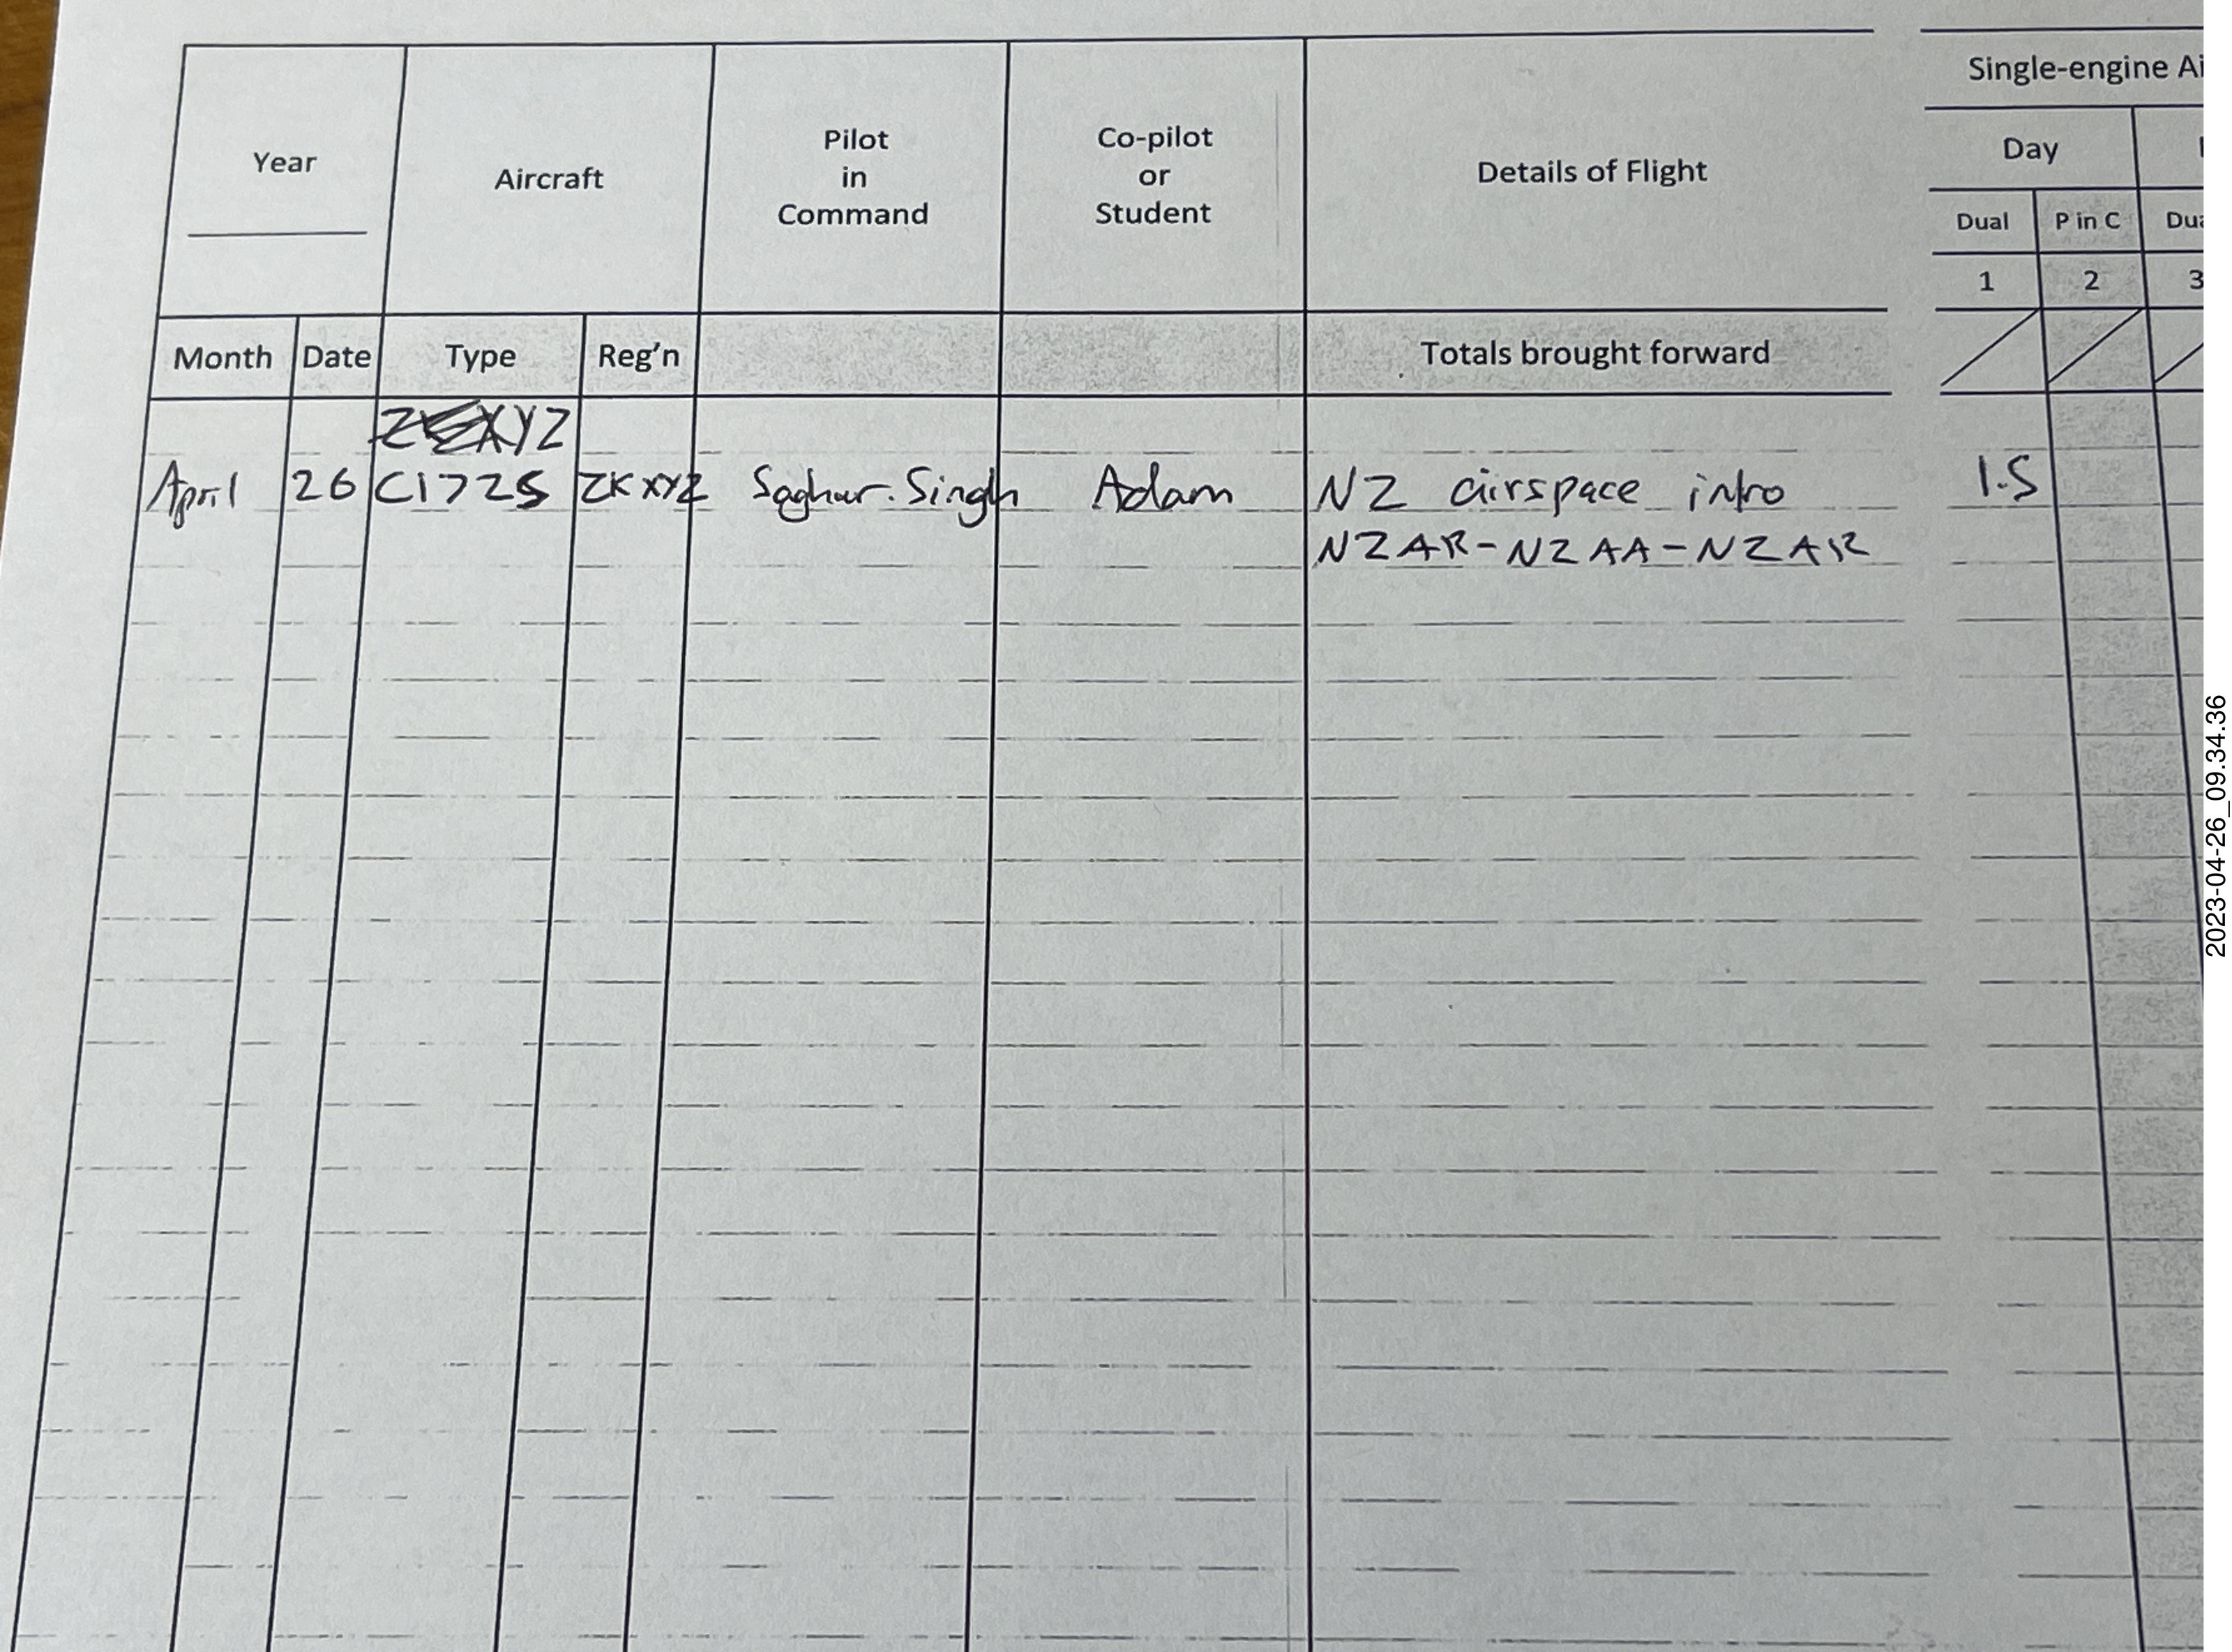 Single-engine Ai
Year
Aircraft
Pilot
in
Command
Co-pilot
or
Student
Details of Flight
Day
Dual
P in C
Dua
1
2
3
Month Date Type Reg'n Totals brought forward
XYZ
April 26 C172S ZKXYZ Saghar. Singh Adam NZ airspace intro 1.5
NZAR-NZAA-NZAR
2023-04-26_09.34.36